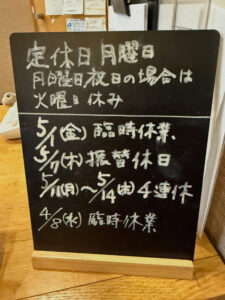 定休日 月曜日
月曜日祝日の場合は
火曜日休み
5/1(金) 臨時休業
5/7(木) 振替休日
5/11(月)〜5/14(木)4連休
4/8(水) 臨時休業